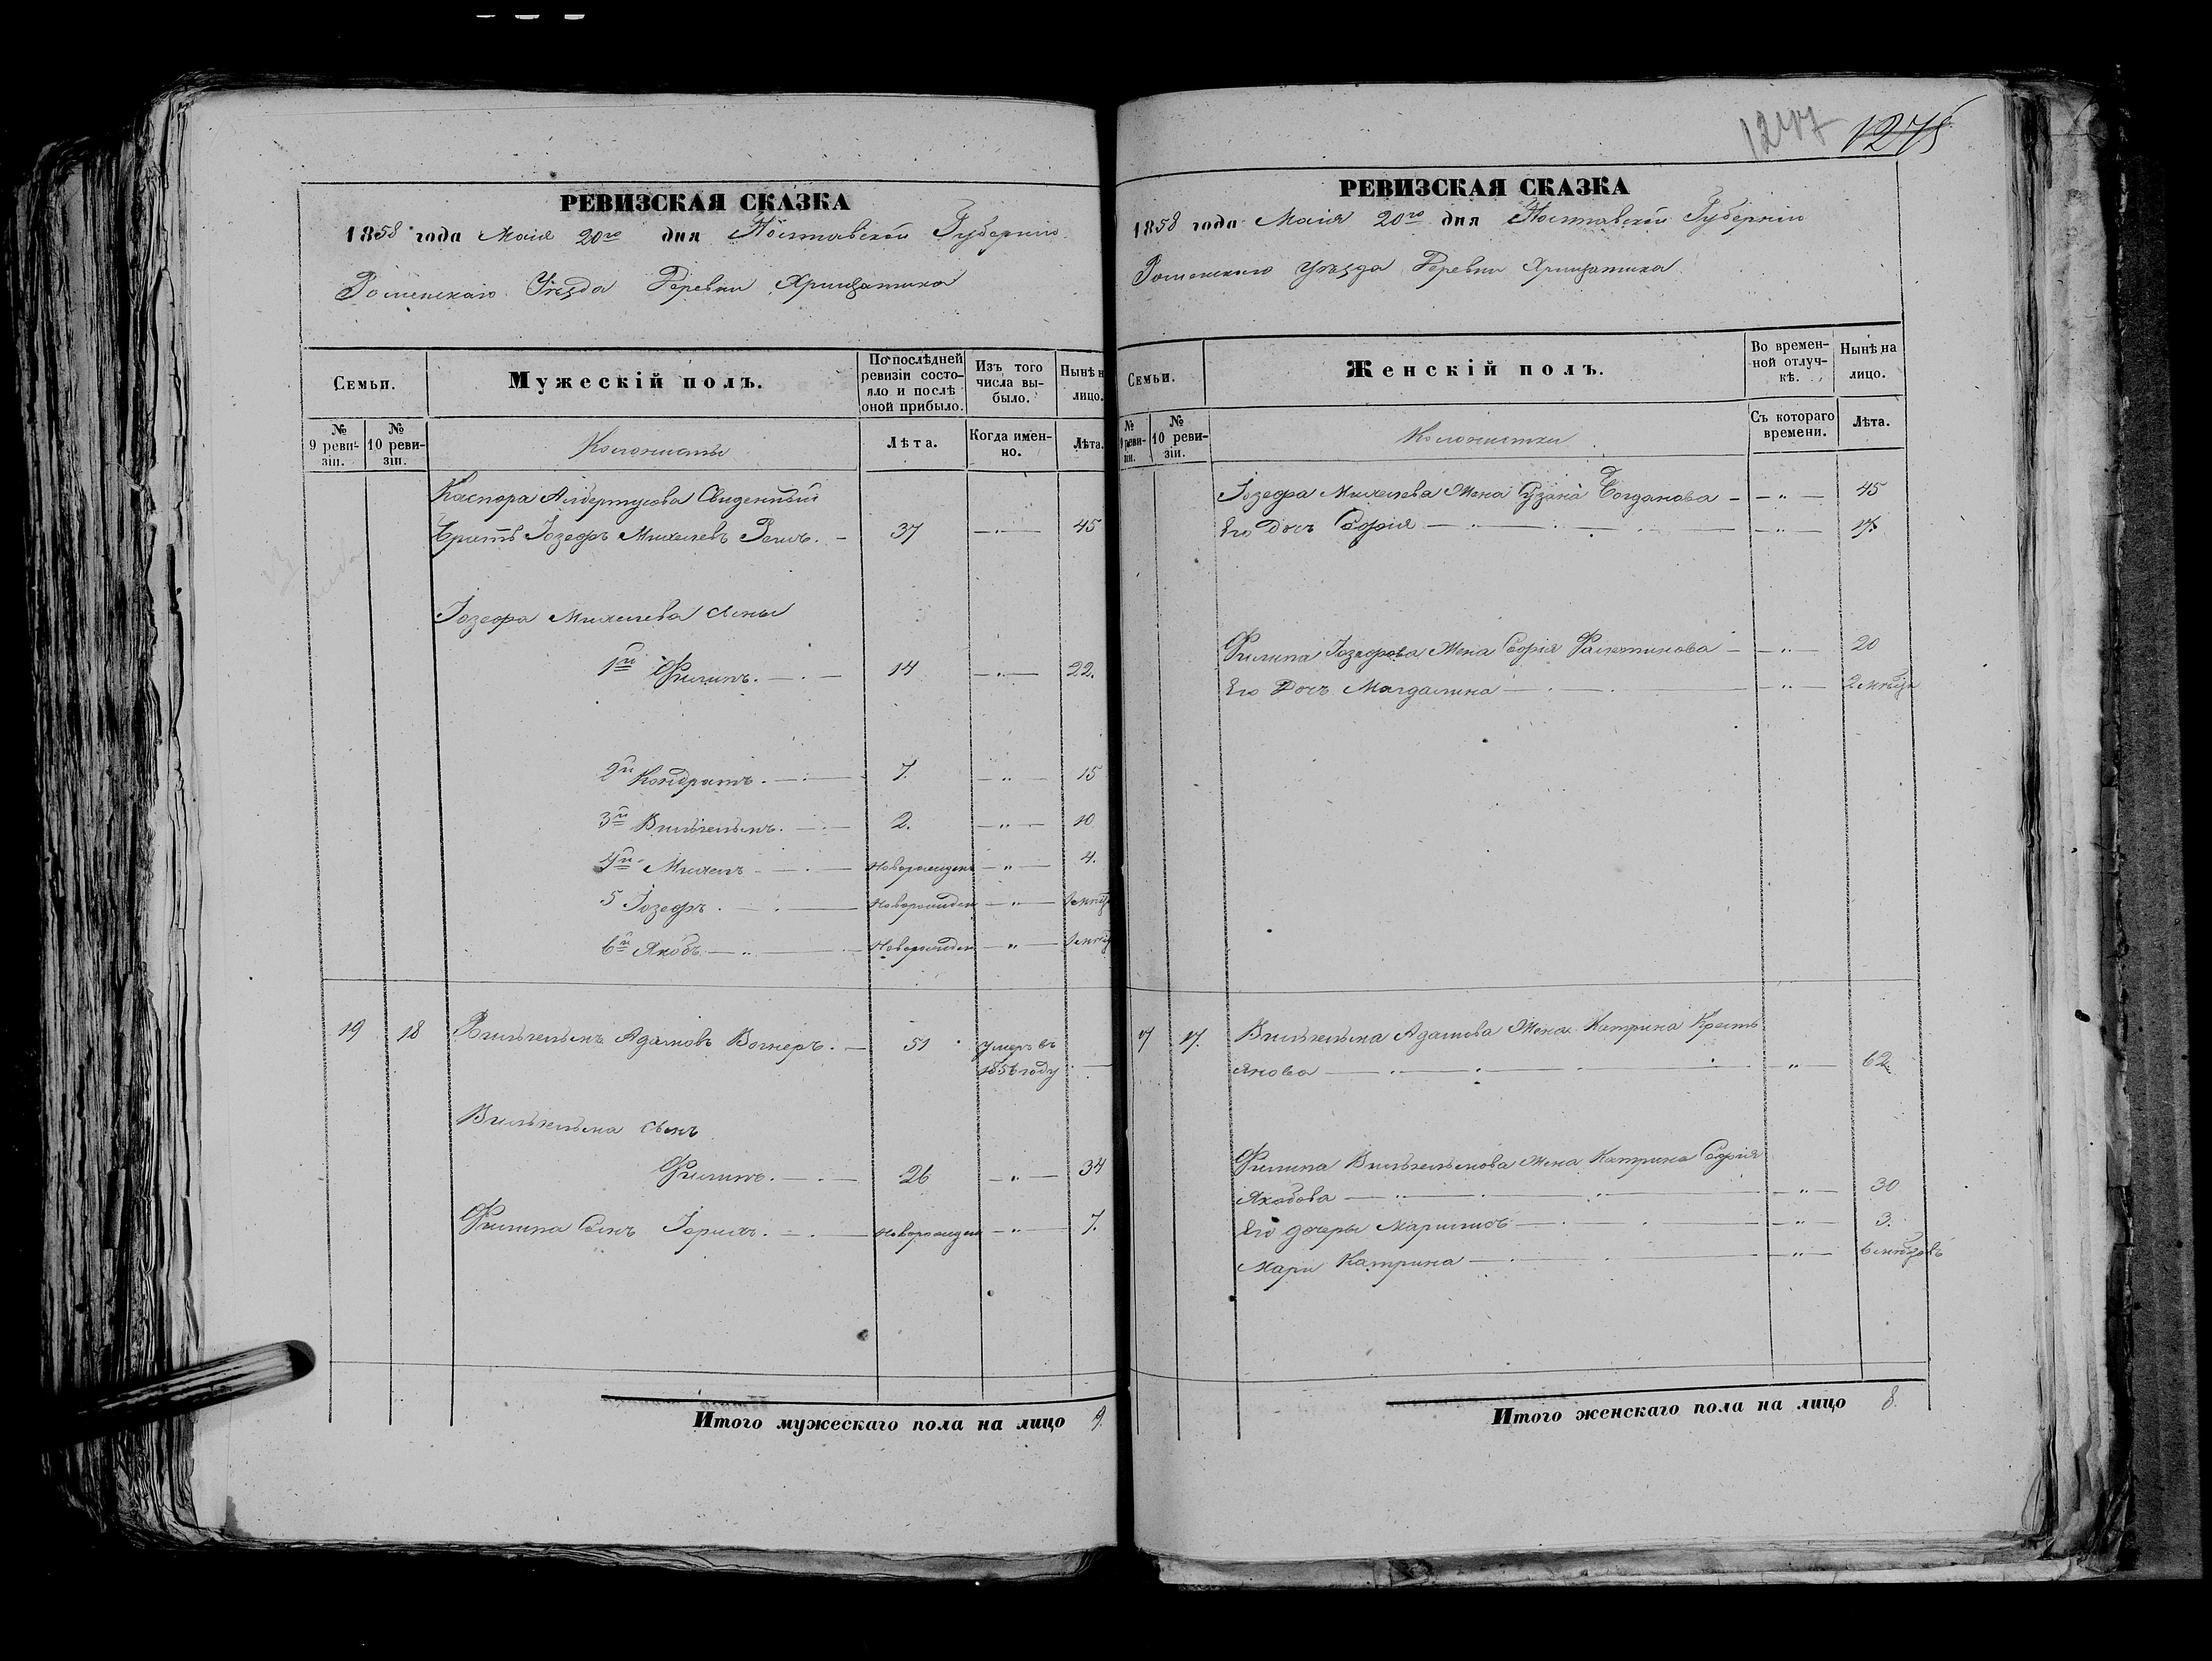 1247
1275
РЕВИЗСКАЯ СКАЗКА
1858 года Маія 20го дня Полтавской Губерніи
Роменскаго Уѣзда Деревни Хрищатика
Семьи.
Мужескій полъ.
По послѣдней ревизіи состояло и послѣ оной прибыло.
Изъ того числа выбыло.
Нынѣ н лицо.
№ 9 ревизіи.
№ 10 ревизіи.
Колонисты
Лѣта.
Когда именно.
Лѣта.
Каспора Албертусова Своденный
братъ Іозефъ Михелевъ 37 — 45
Іозефа Михелева сыны
1й Филипъ. 14 — 22.
2й Кондратъ. 7. — 15
3й Вильгельмъ. 2. — 10
4й Михель Новорожден — 4.
5 Іозефъ Новорожден —
6й Якобъ Новорожден —
19 18 Вильгельмъ Адамовъ Вагнеръ. 51 умеръ въ
1856 году
Вильгельма сынъ
Филипъ. 26 — 34
Филипа Сынъ Новорожден — 7.
Итого мужескаго пола на лицо 9.
РЕВИЗСКАЯ СКАЗКА
1858 года Маія 20го дня Полтавской Губерніи
Роменскаго Уѣзда Деревни Хрищатика
Семьи.
Женскій полъ.
Во временной отлучкѣ.
Нынѣ на лицо.
№ 9 ревизіи.
№ 10 ревизіи.
Колонистки
Съ котораго времени.
Лѣта.
Іозефа Михелева Жена Сузана Богданова — 45
Его Дочь Софія —
Филипа Іозефова Жена Софія Фалентинова — 20
Его Дочь Магдалина — 2 мѣсяц
17 17. Вильгельма Адамова Жена Катрина
Якова — 62
Филипа Вильгельмова Жена Катрина Софія
Якобова — 30
Его дочеры — 3.
Мари Катрина — 6 мѣсяцовъ
Итого женскаго пола на лицо 8.